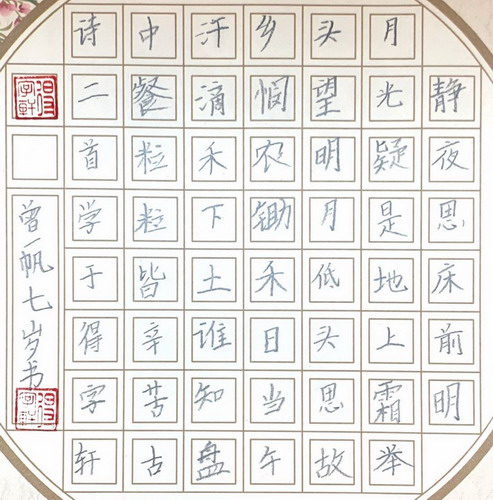 静夜思床前明
月光疑是地上霜举
头望明月低头思故
乡悯农锄禾日当午
汗滴禾下土谁知盘
中餐粒粒皆辛苦古
诗二首学于得字轩
得字軒
曾一帆七岁书